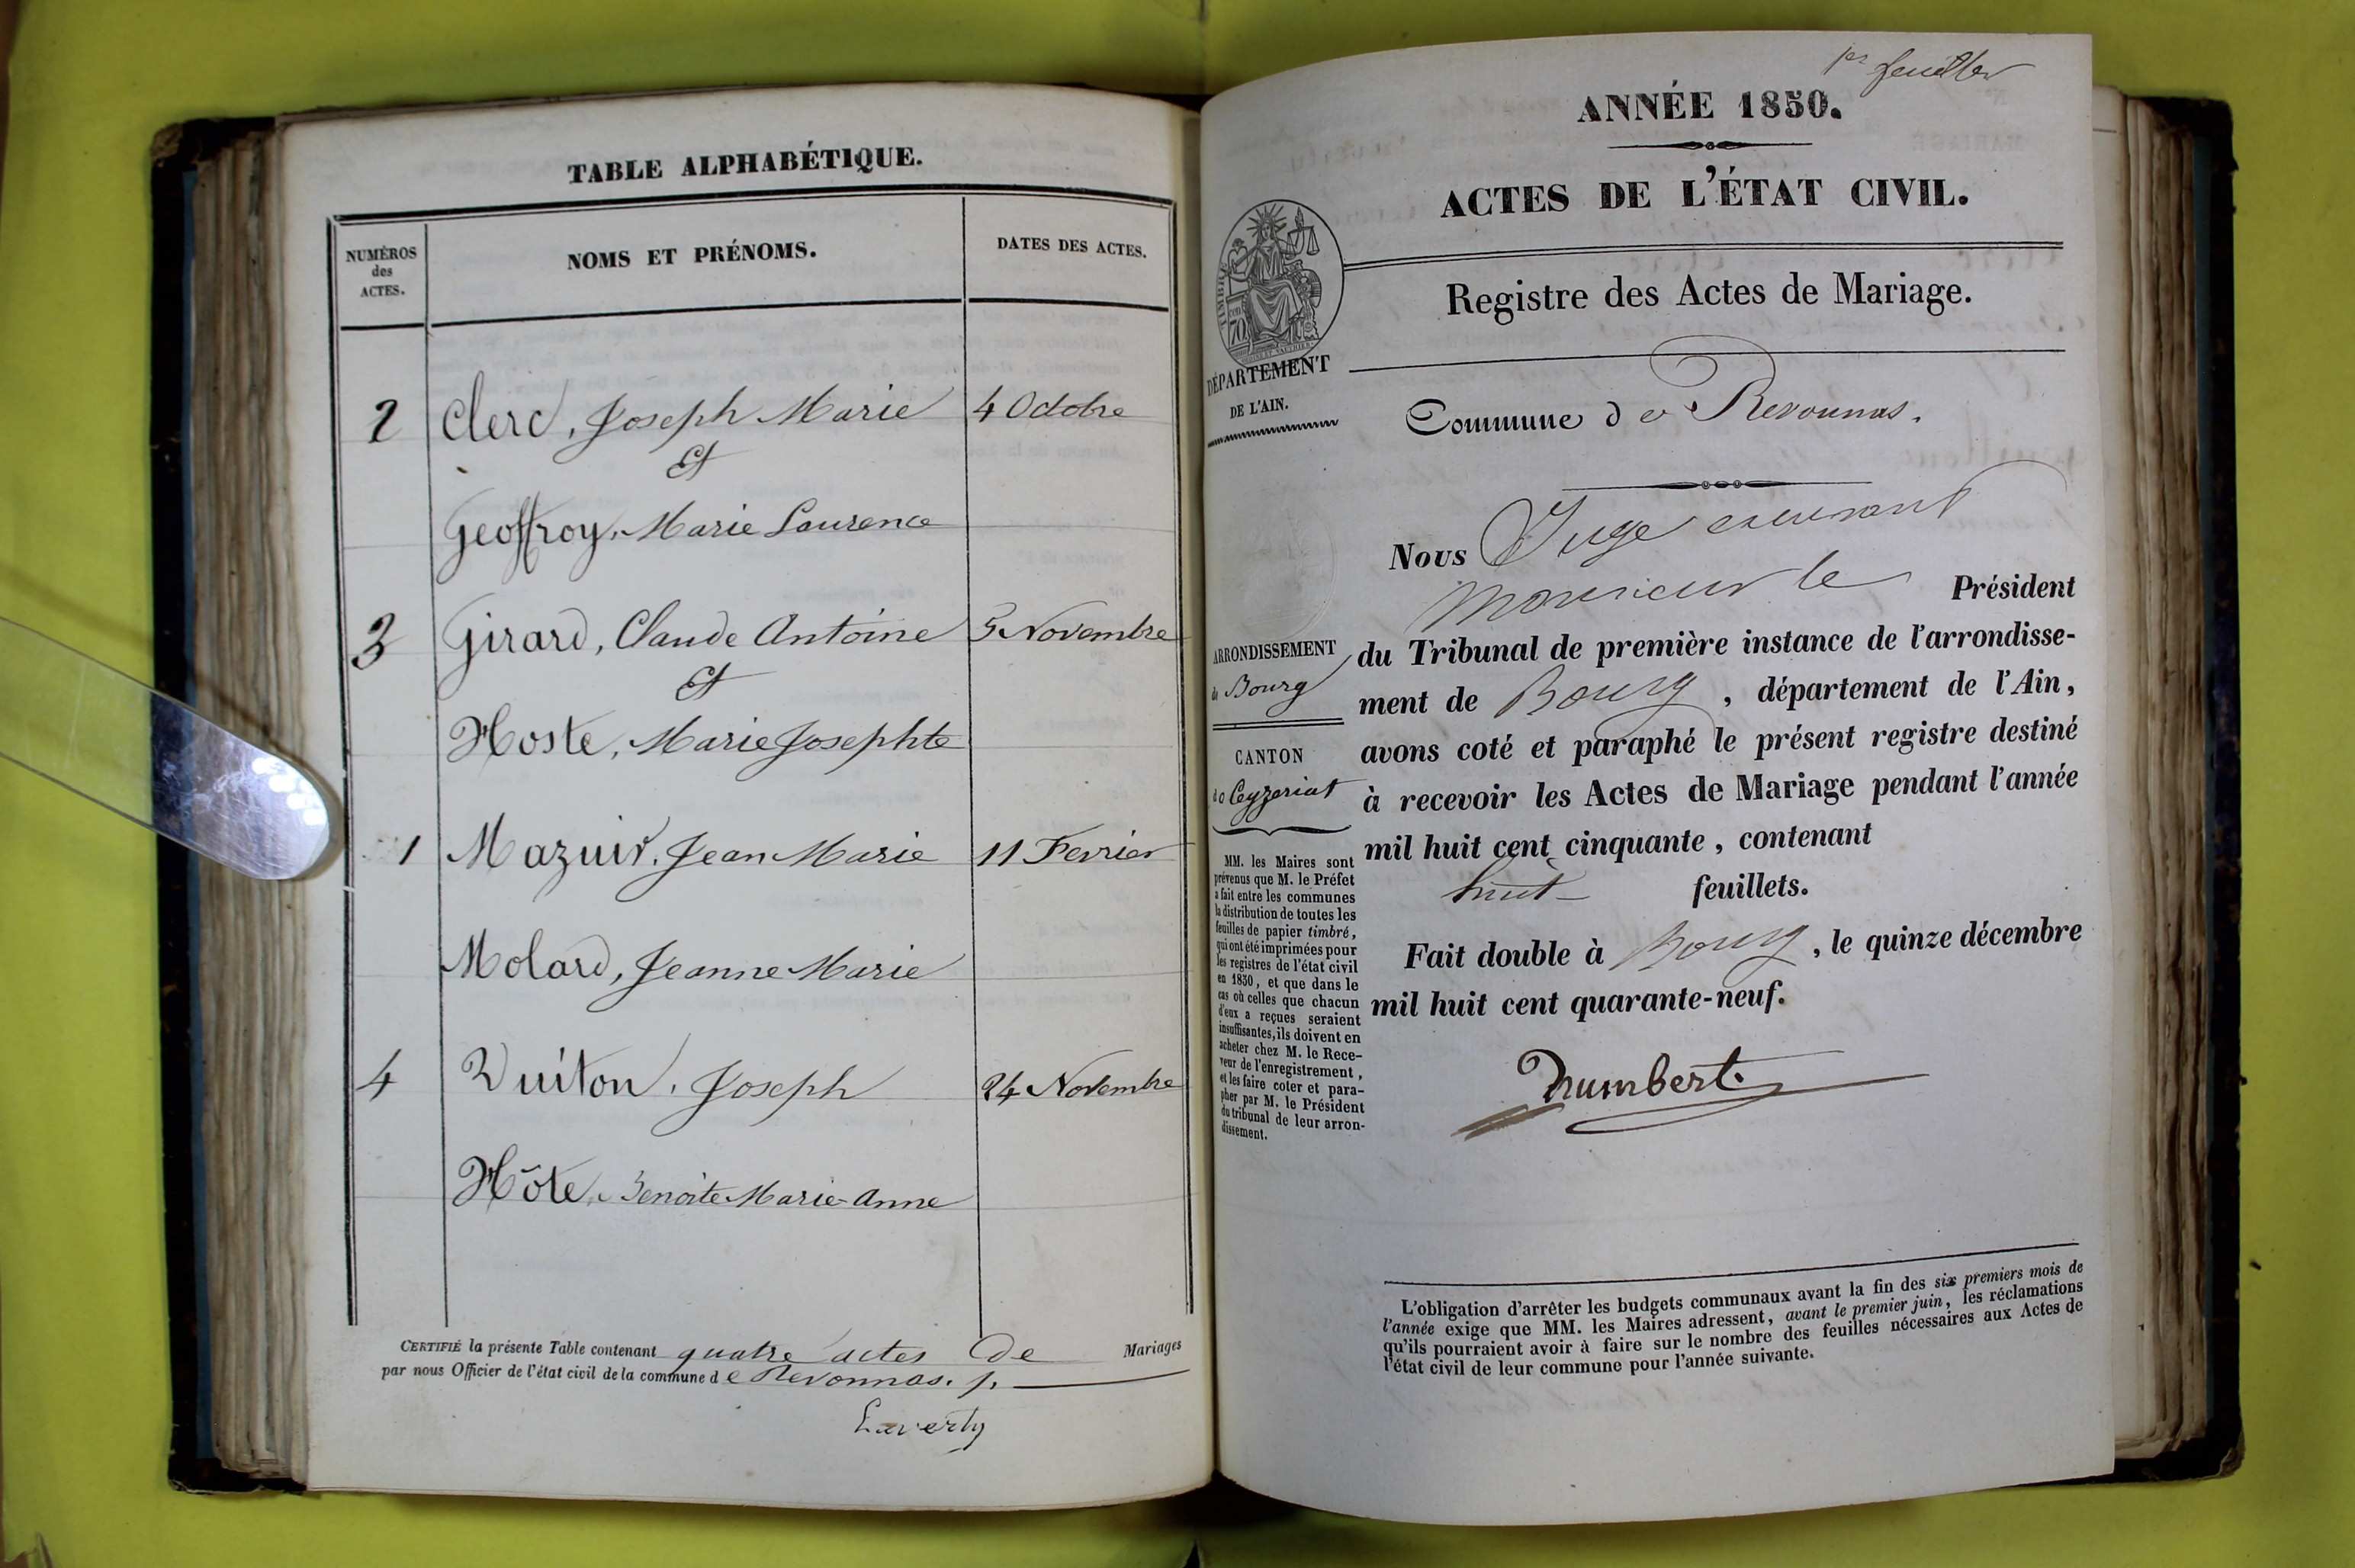 TABLE ALPHABÉTIQUE.
NUMÉROS
des
ACTES.
NOMS ET PRÉNOMS.
DATES DES ACTES.
2 Clerc, Joseph Marie 4 Octobre
Et
Geoffroy, Marie Laurence
3 Girard, Claude Antoine 5 Novembre
Et
Hoste, Marie Josephte
1 Mazuir, Jean Marie 11 Fevrier
Molard, Jeanne Marie
4 Vuiton, Joseph 24 Novembre
Hôte, Benoite Marie-Anne
CERTIFIÉ la présente Table contenant quatre actes de Mariages
par nous Officier de l'état civil de la commune de Revonnas.
1er feuillet
ANNÉE 1850.
ACTES DE L'ÉTAT CIVIL.
Registre des Actes de Mariage.
TIMBRE
70
DÉPARTEMENT
DE L'AIN.
Commune de Revonnas.
Nous Juge
Monsieur le Président
du Tribunal de première instance de l'arrondisse-
ment de Bourg, département de l'Ain,
avons coté et paraphé le présent registre destiné
à recevoir les Actes de Mariage pendant l'année
mil huit cent cinquante, contenant
huit feuillets.
Fait double à Bourg, le quinze décembre
mil huit cent quarante-neuf.
ARRONDISSEMENT
de Bourg
CANTON
de Ceyzeriat
MM. les Maires sont
prévenus que M. le Préfet
a fait entre les communes
la distribution de toutes les
feuilles de papier timbré,
qui ont été imprimées pour
les registres de l'état civil
en 1850, et que dans le
cas où celles que chacun
d'eux a reçues seraient
insuffisantes, ils doivent en
acheter chez M. le Rece-
veur de l'enregistrement,
et les faire coter et para-
pher par M. le Président
du tribunal de leur arron-
dissement.
L'obligation d'arrêter les budgets communaux avant la fin des six premiers mois de
l'année exige que MM. les Maires adressent, avant le premier juin, les réclamations
qu'ils pourraient avoir à faire sur le nombre des feuilles nécessaires aux Actes de
l'état civil de leur commune pour l'année suivante.